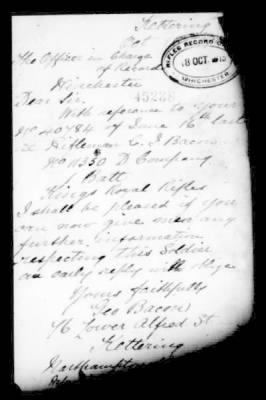 Kettering
Oct
RIFLES RECORD
18 OCT. 1915
WINCHESTER
The Officer in Charge
of Records
Winchester
45238
Dear Sir,
With reference to your
No 40784 of June 16th last
Rifleman C. J. Bacon
No 11350 D Company
1 Batt
Kings Royal Rifles
I shall be pleased if you
can now give me any
further information
respecting this Soldier
an early reply will oblige
Yours faithfully
Geo Bacon
76 Lower Alfred St
Kettering
Northampton